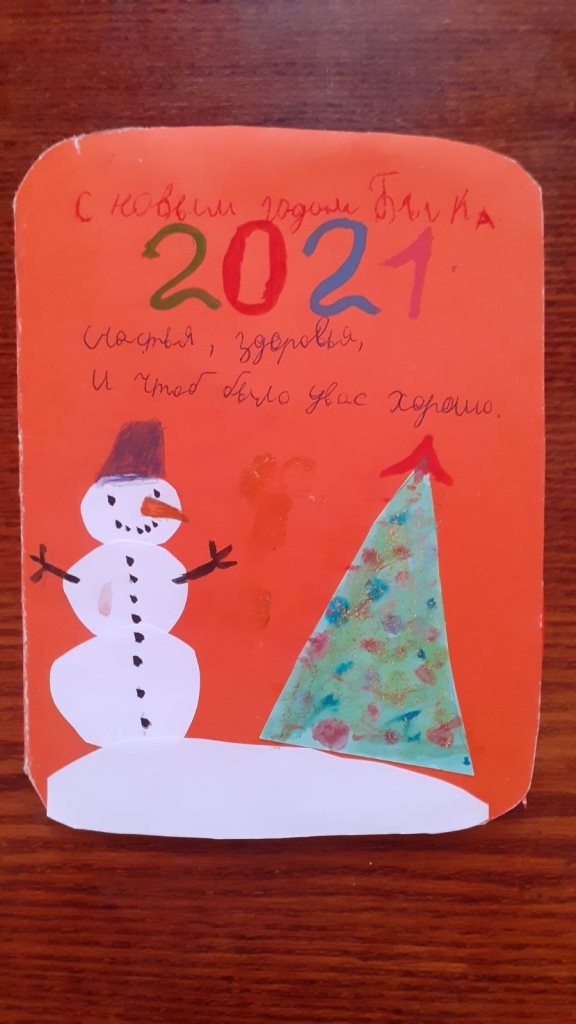 с новым годом Быка
2021
счастья, здоровья,
И чтоб было увас хорошо.